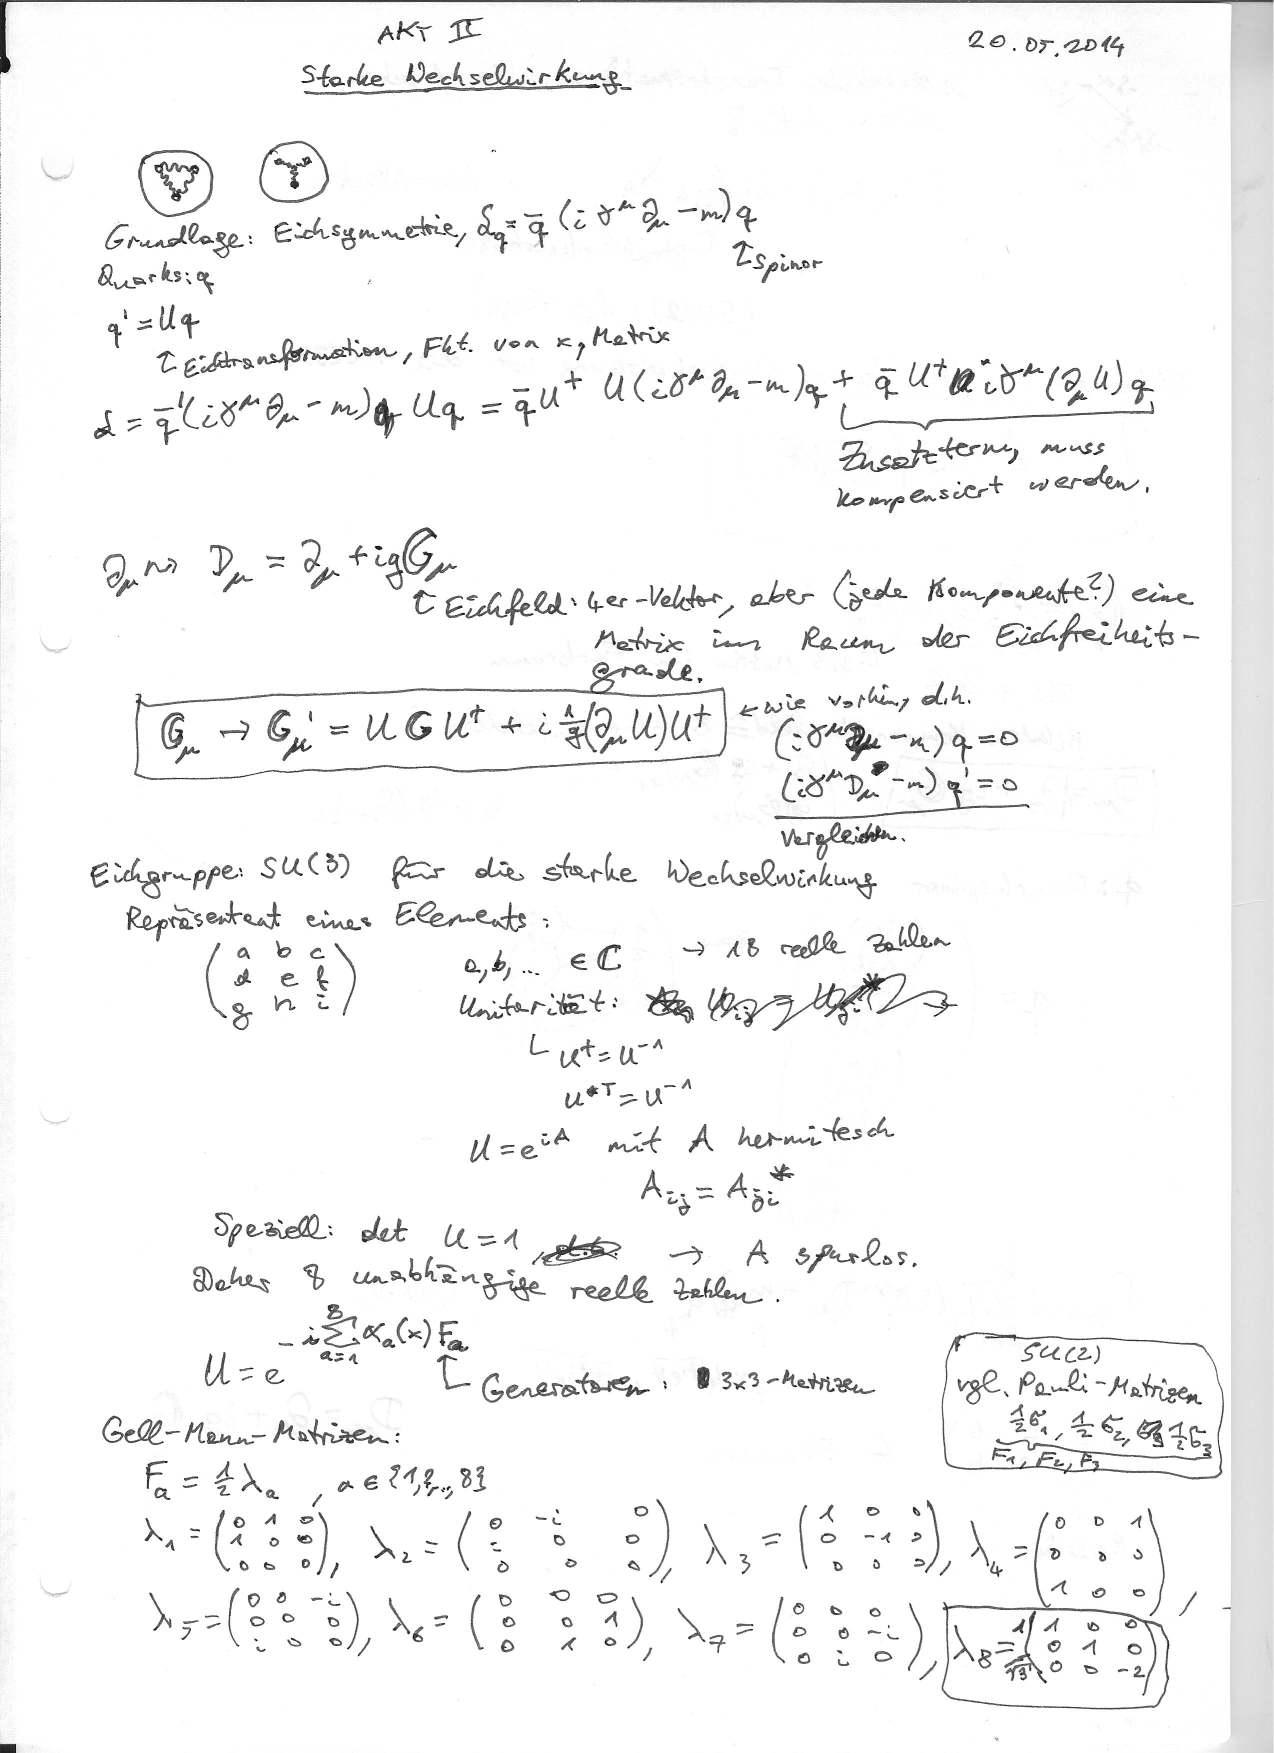 AKT II
20.05.2014
Starke Wechselwirkung
Grundlage: Eichsymmetrie, ℒ_q = q̄ (i γ^μ ∂_μ − m) q
↑ Spinor
Quarks: q
q' = Uq
↑ Eichtransformation, Fkt. von x, Matrix
ℒ = q̄' (i γ^μ ∂_μ − m) Uq = q̄ U† U (i γ^μ ∂_μ − m) q + q̄ U† i γ^μ (∂_μ U) q
Zusatzterm, muss
kompensiert werden.
∂_μ ⇝ D_μ = ∂_μ + ig G_μ
↑ Eichfeld: 4er-Vektor, aber (jede Komponente?) eine
Matrix im Raum der Eichfreiheits-
grade.
G_μ → G_μ' = U G U† + i 1/g (∂_μ U) U†
← wie vorhin, d.h.
(i γ^μ D_μ − m) q = 0
(i γ^μ D_μ' − m) q' = 0
Vergleichen.
Eichgruppe: SU(3) für die starke Wechselwirkung
Repräsentant eines Elements:
( a b c
d e f
g h i )
a, b, ... ∈ ℂ → 18 reelle Zahlen
Unitarität:
U† = U^-1
U*^T = U^-1
U = e^{iA} mit A hermitesch
A_ij = A_ji*
Speziell: det U = 1, → A spurlos.
Daher 8 unabhängige reelle Zahlen.
U = e^{−i Σ_{a=1}^{8} α_a(x) F_a}
Generatoren: 3x3-Matrizen
SU(2)
vgl. Pauli-Matrizen
½σ_1, ½σ_2, ½σ_3
F_1, F_2, F_3
Gell-Mann-Matrizen:
F_a = ½ λ_a , a ∈ {1,2,..,8}
λ_1 = (0 1 0; 1 0 0; 0 0 0), λ_2 = (0 −i 0; i 0 0; 0 0 0), λ_3 = (1 0 0; 0 −1 0; 0 0 0), λ_4 = (0 0 1; 0 0 0; 1 0 0),
λ_5 = (0 0 −i; 0 0 0; i 0 0), λ_6 = (0 0 0; 0 0 1; 0 1 0), λ_7 = (0 0 0; 0 0 −i; 0 i 0), λ_8 = 1/√3 (1 0 0; 0 1 0; 0 0 −2)